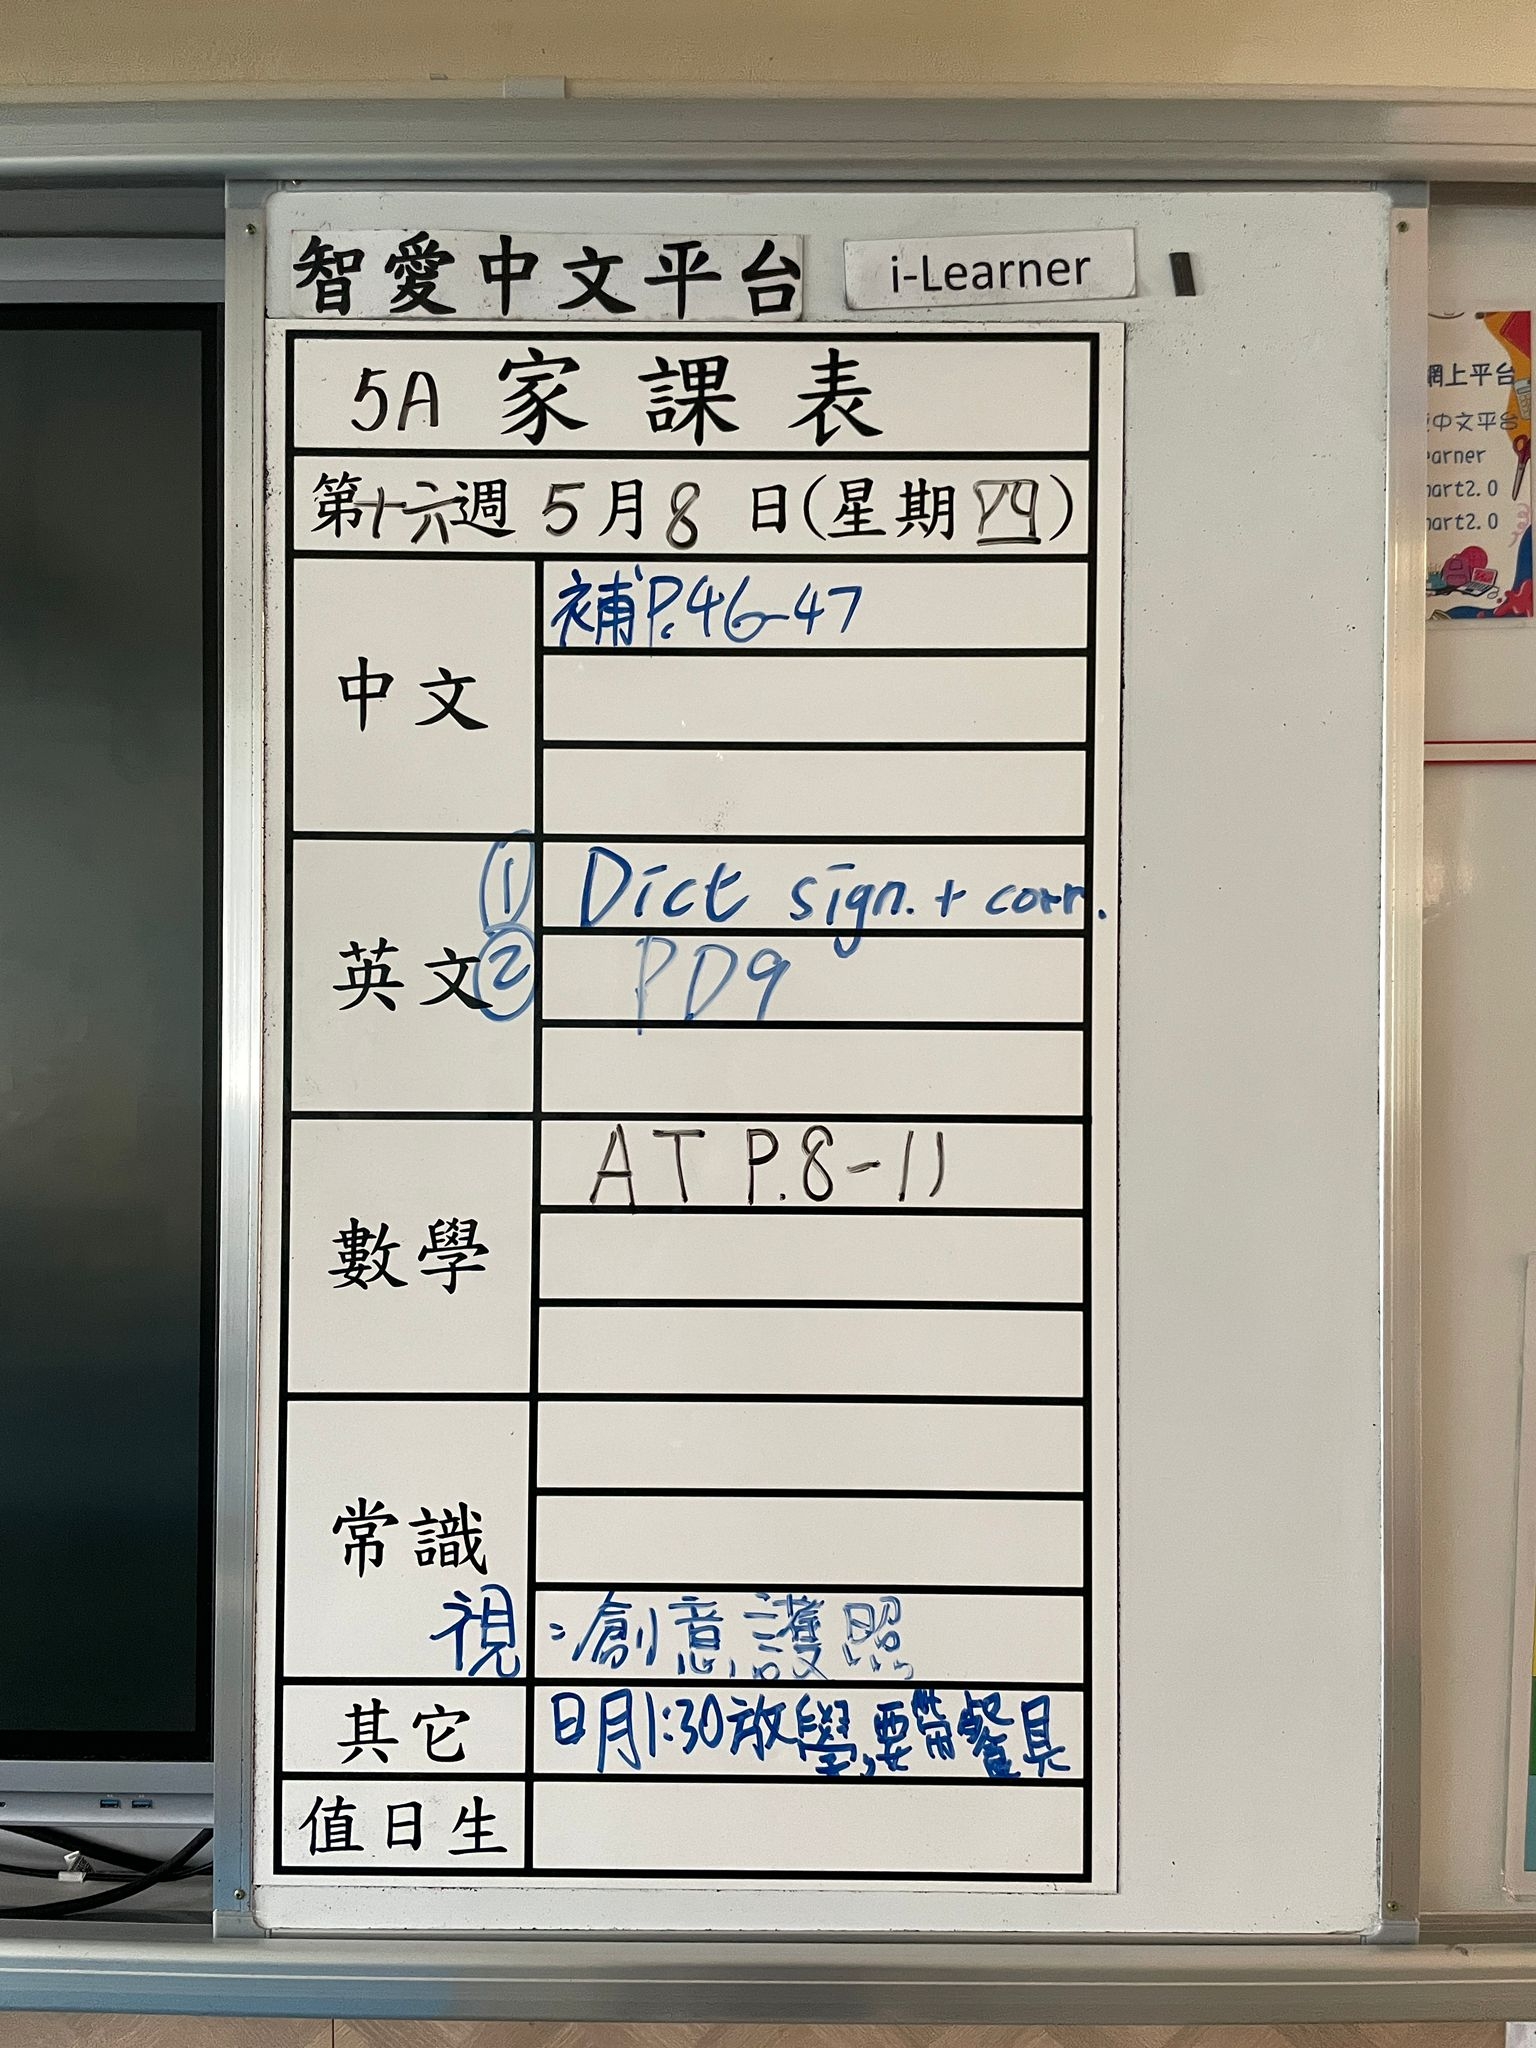 智愛中文平台 i-Learner
5A 家課表
第十六週 5月8日(星期四)
中文
補P.46-47
英文
① Dict sign. + corr.
② PD9
數學
AT P.8-11
常識
視:創意護照
其它
日月1:30放學,要帶餐具
值日生
網上平台
中文平台
earner
mart2.0
mart2.0